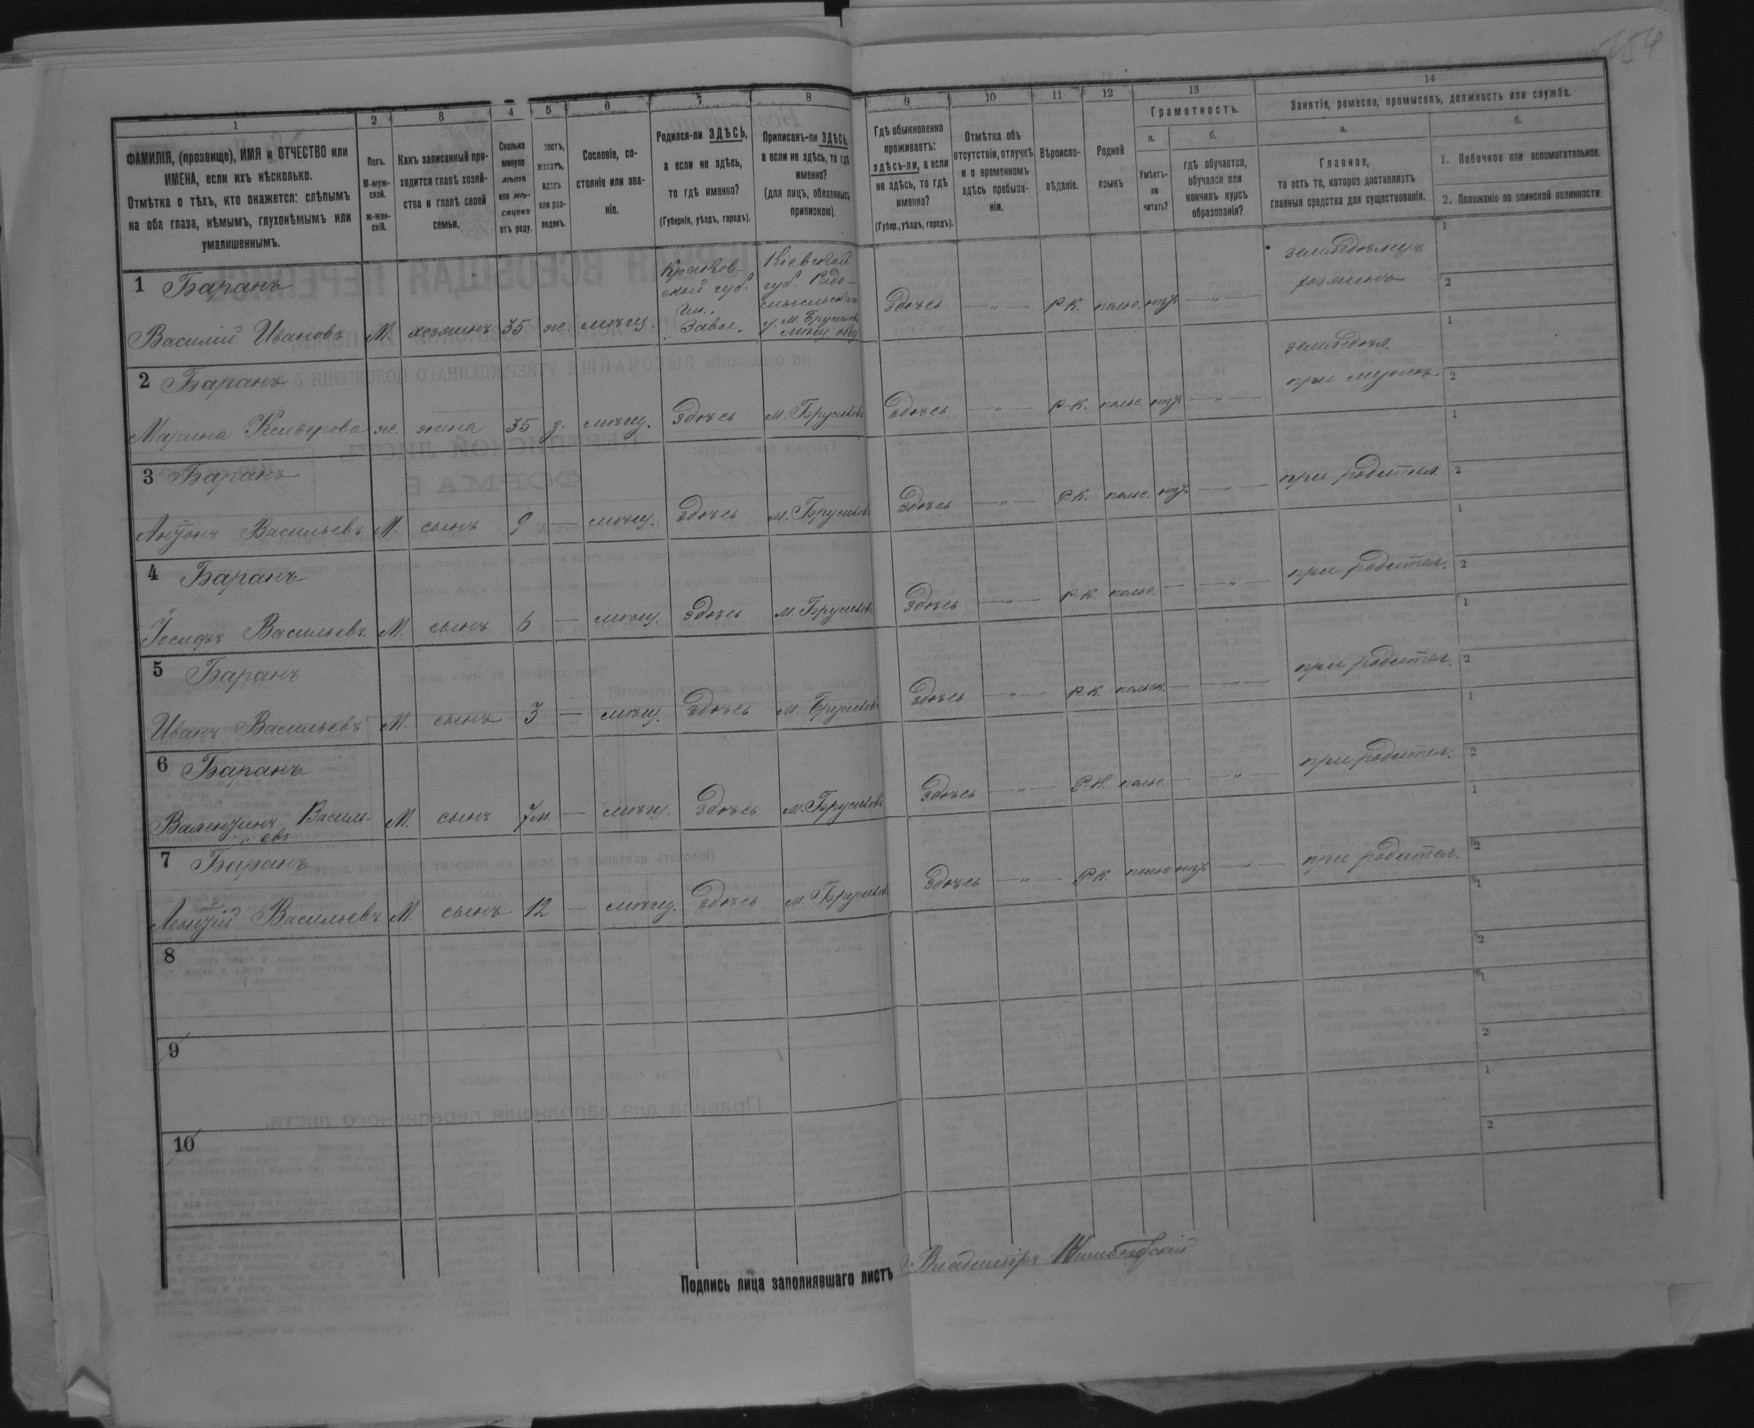 154
1
2
3
4
5
6
7
8
9
10
11
12
13
14
ФАМИЛІЯ, (прозвище), ИМЯ и ОТЧЕСТВО или
ИМЕНА, если ихъ нѣсколько.
Отмѣтка о тѣхъ, кто окажется: слѣпымъ
на оба глаза, нѣмымъ, глухонѣмымъ или
умалишеннымъ.
Полъ.
М-муж-
ской.
Ж-жен-
скій.
Какъ записанный при-
ходится главѣ хозяй-
ства и главѣ своей
семьи.
Сколько
минуло
лѣтъ
или мѣ-
сяцевъ
отъ роду.
или раз-
веденъ.
Сословіе, со-
стояніе или зва-
ніе.
Родился-ли ЗДѢСЬ,
а если не здѣсь,
то гдѣ именно?
(Губернія, уѣздъ, городъ).
Приписанъ-ли ЗДѢСЬ,
а если не здѣсь, то гдѣ
именно?
(для лицъ, обязанныхъ
припискою).
Гдѣ обыкновенно
проживаетъ:
здѣсь-ли, а если
не здѣсь, то гдѣ
именно?
(Губер., уѣздъ, городъ).
Отмѣтка объ
отсутствіи, отлучкѣ
и о временномъ
здѣсь пребыва-
ніи.
Вѣроиспо-
вѣданіе.
Родной
языкъ
Грамотность.
а.
б.
Умѣетъ-
ли
читать?
Гдѣ обучается,
обучался или
кончилъ курсъ
образованія?
Занятіе, ремесло, промыселъ, должность или служба.
а.
б.
Главное,
то есть то, которое доставляетъ
главныя средства для существованія.
1. Побочное или вспомогательное.
2. Положеніе по воинской повинности.
1 Баранъ
Василій Ивановъ М. хозяинъ 35 ж. мѣщ.
Кіевской
губ. Радо-
мысльскаго
у. М. Брусиловъ
Здѣсь — " — Р.К. польс. — " —
земледѣлецъ
хозяинъ
1
2
2 Баранъ
Марина ж. жена 35 з. мѣщ. Здѣсь м. Брусиловъ Здѣсь — " — Р.К. польс. — " —
земледѣл.
при мужѣ
1
2
3 Баранъ
Антонъ Васильевъ М. сынъ 9 — мѣщ. Здѣсь м. Брусиловъ Здѣсь — " — Р.К. польс. — " — при родител.
1
2
4 Баранъ
Іосифъ Васильевъ М. сынъ 6 — мѣщ. Здѣсь м. Брусиловъ Здѣсь — " — Р.К. польс. — — " — при родител.
1
2
5 Баранъ
Иванъ Васильевъ М. сынъ 3 — мѣщ. Здѣсь м. Брусиловъ Здѣсь — " — Р.К. польск. — — " — при родител.
1
2
6 Баранъ
Валентинъ Василь-
евъ
М. сынъ 7м — мѣщ. Здѣсь м. Брусиловъ Здѣсь — " — Р.К. польс. — — " — при родител.
1
2
7 Баранъ
Васильевъ М. сынъ 12 — мѣщ. Здѣсь м. Брусиловъ Здѣсь — " — Р.К. польс — " — при родител.
1
2
8
1
2
9
1
2
10
1
2
Подпись лица заполнявшаго листъ Владиміръ